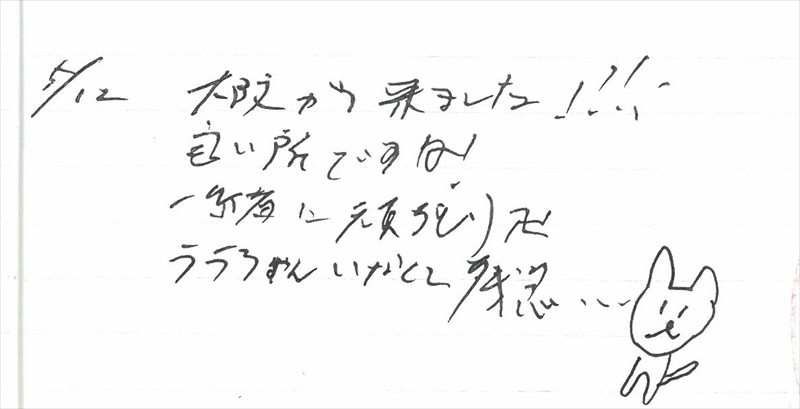 5/12 大阪から来ました!!!
良い所ですな!
一緒に頑張り
ララちゃんいなくて残念…